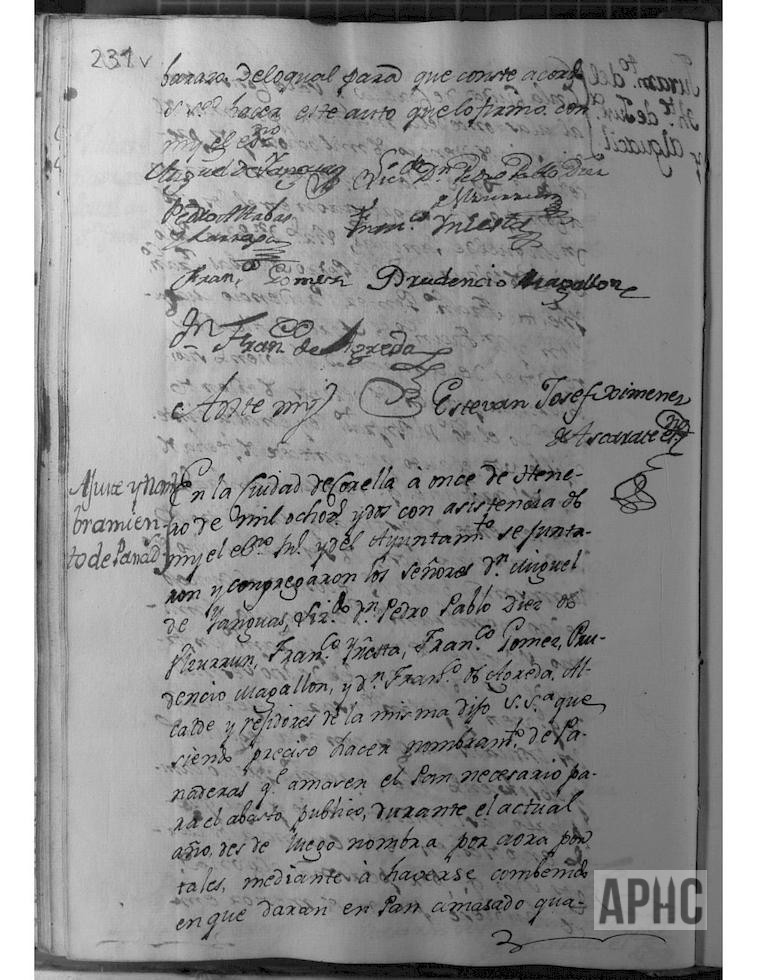 231v
baraza. De lo qual para que conste acordó
s. s.ª hacer este auto que lo firmo con
my el esno
Miguel de Yanguas Licdo Dn Pedro Pablo Diez
de Ulzurrun
Pedro Alabas
y Larraga
Franco Iniesta
Franco Gomez Prudencio Magallon
Dn Franco de Agreda
Ante my Estevan Josef Ximenez
de Ascarate esno
Ajuste y nom
bramien-
to de Panad
En la Ciudad de Corella a once de Hene-
ro de mil ochoz.s y dos con asistencia de
my el esno Rl. y del Ayuntamto se junta-
ron y congregaron los señores Dn Miguel
de Yanguas, Licdo Dn Pedro Pablo Diez de
Ulzurrun, Franco Yñesta, Franco Gomez, Pru-
dencio Magallon, y Dn Franco de Agreda, Al-
calde y rejidores de la misma dijo S. S.ª que
siendo preciso hacer nombramto de Pa-
naderas qe amasen el Pan necesario pa-
ra el abasto publico, durante el actual
año, desde luego nombra por aora por
tales, mediante à haverse combenido
en que daran en Pan amasado qua-
Juramto del
Tħe. de Jur.
y alguacil
APHC